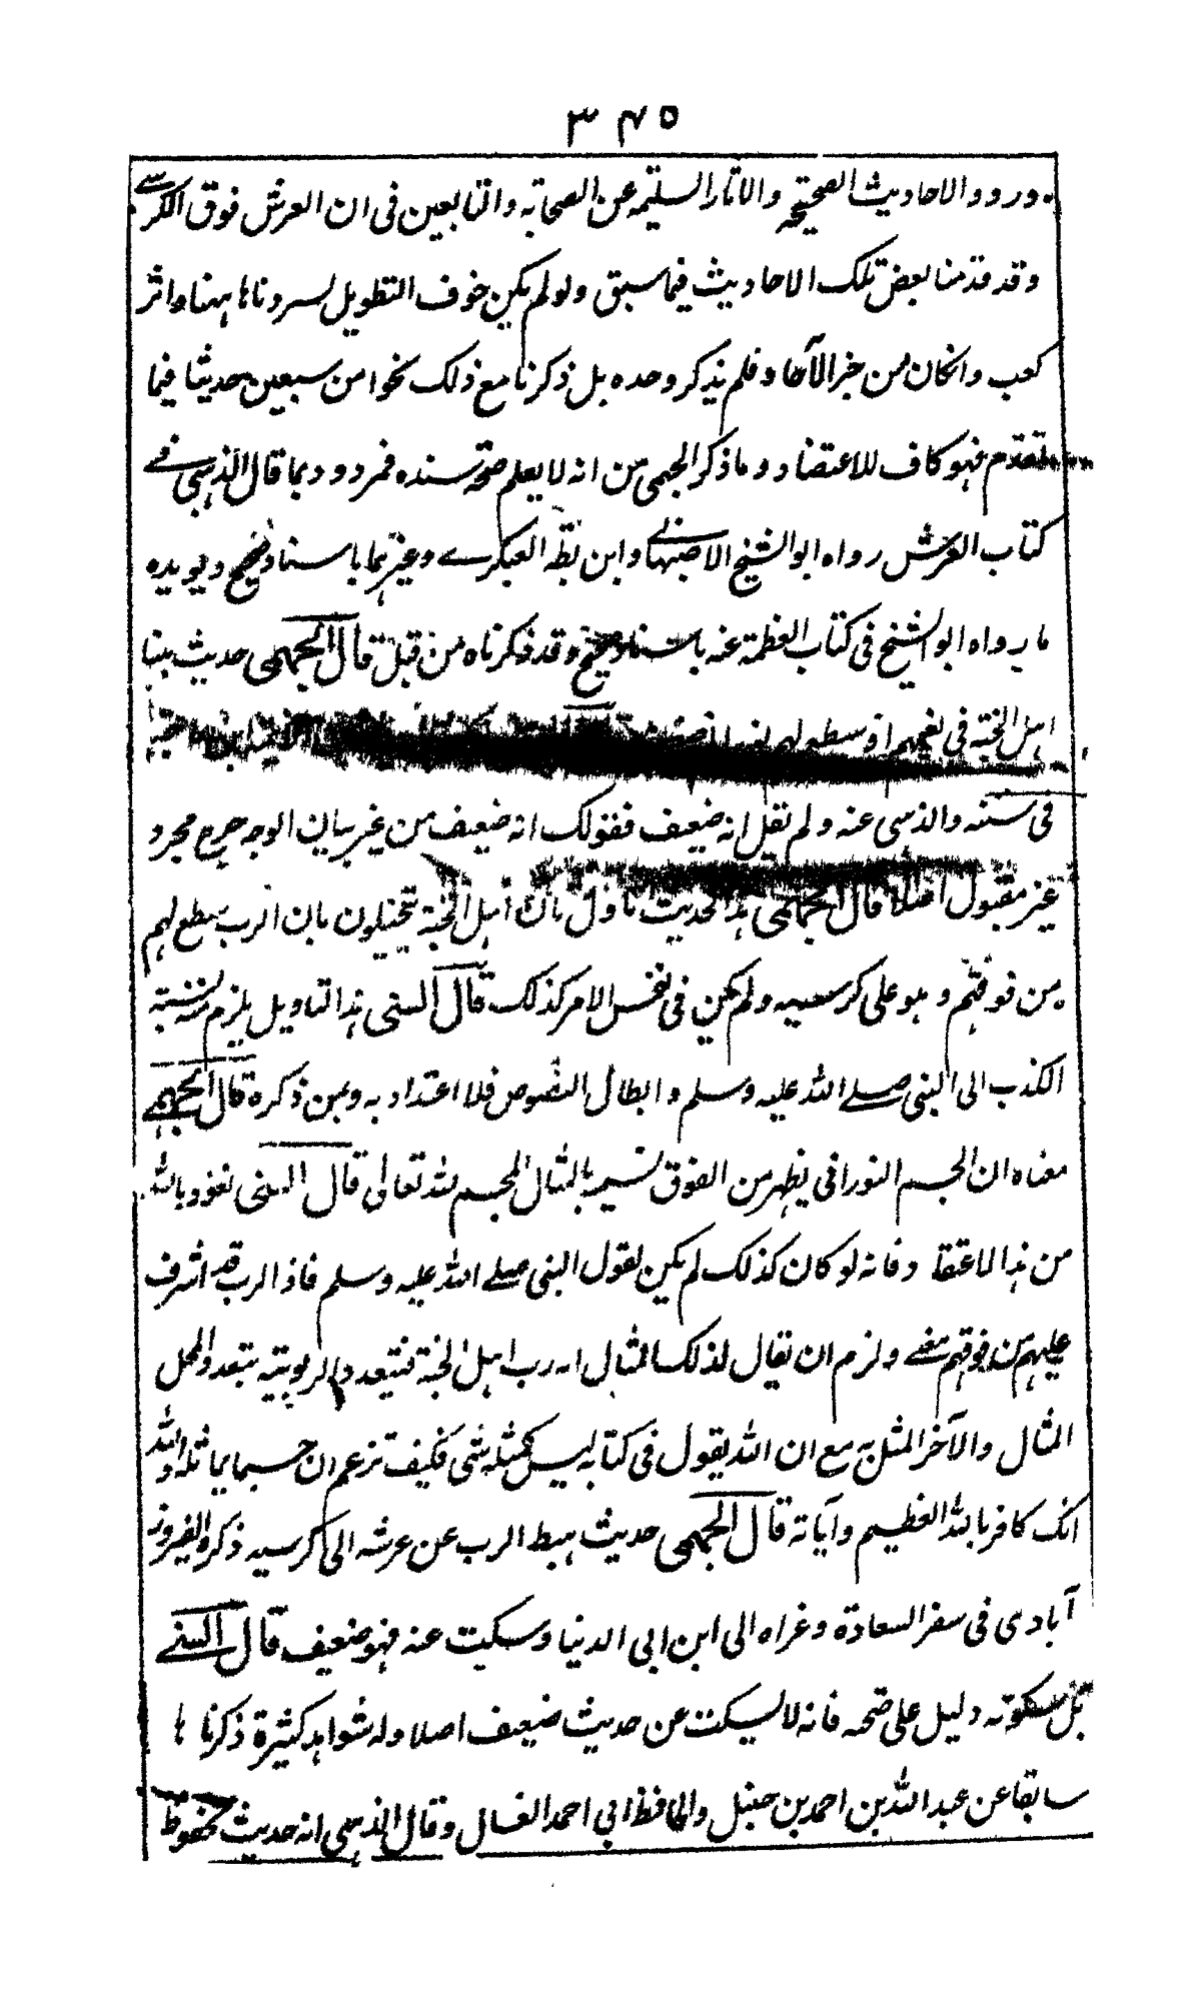 ٣٤٥
ورود الاحاديث الصحيحة والاثار السليمة عن الصحابة والتابعين فى ان العرش فوق الكرسے
وقد قدمنا بعض تلك الاحاديث فيما سبق ولو لم يكن خوف التطويل لسردناها ههنا واثر
كعب وان كان من خبر الآحاد فلم يذكر وحده بل ذكرنا مع ذلك نحوا من سبعين حديثا فيما
تقدم فهو كاف للاعتضاد وما ذكر الجهمى من انه لا يعلم صحة سنده فمردود بما قال الذهبى فے
كتاب العرش رواه ابو الشيخ الاصبهانے وابن بطة العبكرے وغيرهما باسناد صحيح ويويده
ما رواه ابو الشيخ فى كتاب العظمة عنه باسناد صحيح وقد ذكرناه من قبل قال الجهمى حديث بينا
اهل الجنة فى نعيمهم اذ سطع لهم نور ابن ماجة
فى سننه والذهبى عنه ولم نقل انه ضعيف فقولك انه ضعيف من غير بيان الوجه جرح مجرد
غير مقبول اصلا قال الجهمى هذا الحديث ماول بان اهل الجنة يتخيلون بان الرب سطع لهم
من فوقهم وهو على كرسييه ولم يكن فى نفس الامر كذلك قال السنى هذا التاويل يلزم منه نسبته
الكذب الى النبى صلے الله عليه وسلم وابطال النصوص فلا اعتداد به وبمن ذكره قال الجهمے
معناه ان الجسم النورانى يظهر من الفوق نسميه بالمثال المجسم لله تعالى قال السنى نعوذ بالله
من هذا الاعتقاد فانه لو كان كذلك لم يكن لقول النبى صلے الله عليه وسلم فاذا الرب قد اشرف
عليهم من فوقهم معنے ولزم ان يقال لذلك المثال انه رب اهل الجنة فيتعدد الربوبيته بتعدد المحل
المثال والآخر المثل به مع ان الله يقول فى كتابه ليس كمثله شى فكيف تزعم ان جسما يماثله والله
انك كافر بالله العظيم وآياته قال الجهمى حديث هبط الرب عن عرشه الى كرسيه ذكره الفيروز
آبادى فى سفر السعادة وعزاه الى ابن ابى الدنيا وسكت عنه فهو ضعيف قال السنے
بل سكوته دليل على صحته فانه لا يسكت عن حديث ضعيف اصلا وله شواهد كثيرة ذكرناها
سابقا عن عبد الله بن احمد بن حنبل والحافظ ابى احمد العسال وقال الذهبى انه حديث محفوظ